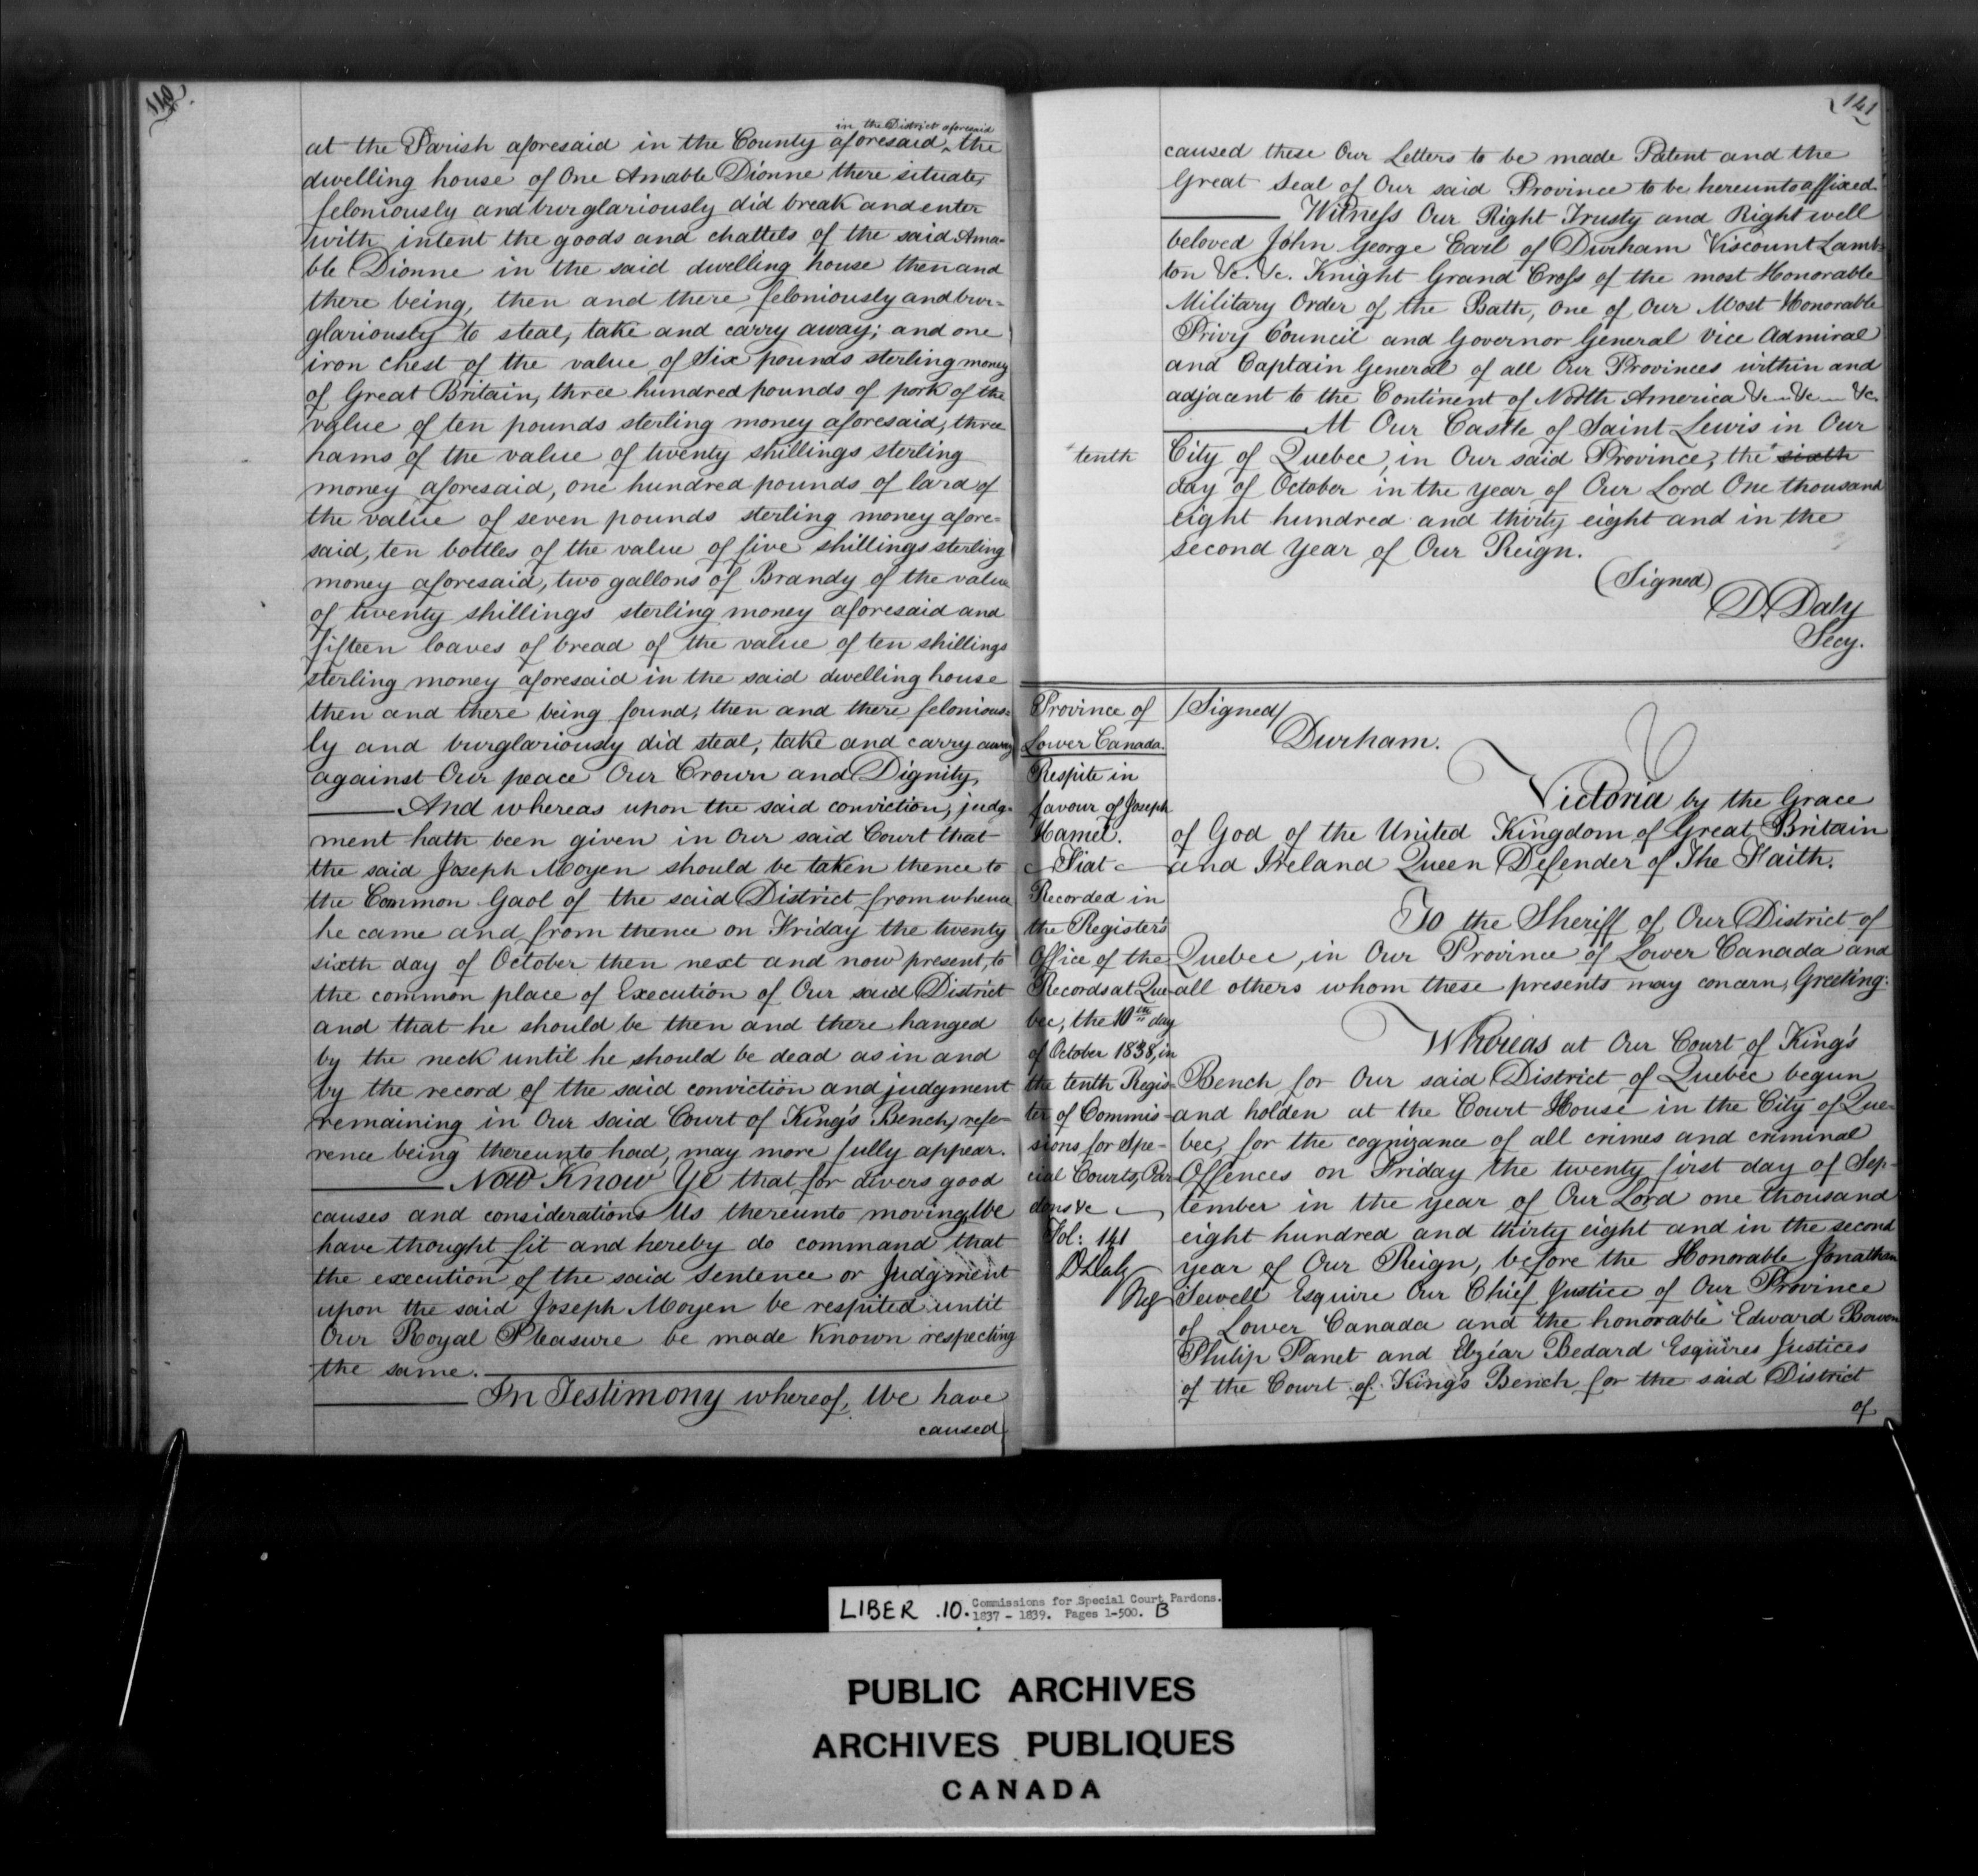 140
in the District aforesaid
at the Parish aforesaid in the County aforesaid ‸ the
dwelling house of One Amable Dionne there situate,
feloniously and burglariously did break and enter
with intent the goods and chattels of the said Ama-
ble Dionne in the said dwelling house then and
there being, then and there feloniously and bur-
glariously to steal, take and carry away; and one
iron chest of the value of Six pounds sterling money
of Great Britain, three hundred pounds of pork of the
value of ten pounds sterling money aforesaid, three
hams of the value of twenty shillings sterling
money aforesaid, one hundred pounds of lard of
the value of seven pounds sterling money afore-
said, ten bottles of the value of five shillings sterling
money aforesaid, two gallons of Brandy of the value
of twenty shillings sterling money aforesaid and
fifteen loaves of bread of the value of ten shillings
sterling money aforesaid in the said dwelling house
then and there being found, then and there felonious-
ly and burglariously did steal, take and carry away
against Our peace Our Crown and Dignity,
And whereas upon the said conviction, judg-
ment hath been given in Our said Court that
the said Joseph Moyen should be taken thence to
the Common Gaol of the said District from whence
he came and from thence on Friday the twenty
sixth day of October then next and now present, to
the common place of Execution of Our said District
and that he should be then and there hanged
by the neck until he should be dead as in and
by the record of the said conviction and judgment
remaining in Our said Court of King's Bench, refe-
rence being thereunto had, may more fully appear.
Now Know Ye that for divers good
causes and considerations Us thereunto moving We
have thought fit and hereby do command that
the execution of the said Sentence or Judgment
upon the said Joseph Moyen be respited until
Our Royal Pleasure be made Known respecting
the same.
In Testimony whereof, We have
caused
141
caused these Our Letters to be made Patent and the
Great Seal of Our said Province to be hereunto affixed
Witness Our Right Trusty and Right well
beloved John George Earl of Durham Viscount Lamb-
ton &c. &c. Knight Grand Cross of the most Honorable
Military Order of the Bath, One of Our Most Honorable
Privy Council and Governor General Vice Admiral
and Captain General of all Our Provinces within and
adjacent to the Continent of North America &c &c &c.
At Our Castle of Saint Lewis in Our
City of Quebec, in Our said Province, the sixth
tenth
day of October in the year of Our Lord One thousand
eight hundred and thirty eight and in the
second year of Our Reign.
(Signed)
D. Daly
Secy.
Province of
Lower Canada.
Respite in
favour of Joseph
Hamel.
Fiat
Recorded in
the Register's
Office of the
Records at Que-
bec, the 10th day
of October 1838, in
the tenth Regis-
ter of Commis-
sions for Spe-
cial Courts, Par
dons &c
Fol: 141
D Daly
Reg
/Signed/
Durham.
Victoria by the Grace
of God of the United Kingdom of Great Britain
and Ireland Queen Defender of The Faith.
To the Sheriff of Our District of
Quebec, in Our Province of Lower Canada and
all others whom these presents may concern, Greeting:
Whereas at Our Court of King's
Bench for Our said District of Quebec begun
and holden at the Court House in the City of Que-
bec, for the cognizance of all crimes and criminal
Offences on Friday the twenty first day of Sep-
tember in the year of Our Lord one thousand
eight hundred and thirty eight and in the second
year of Our Reign, before the Honorable Jonathan
Sewell Esquire Our Chief Justice of Our Province
of Lower Canada and the honorable Edward Bowen
Philip Panet and Elzéar Bedard Esquires Justices
of the Court of King's Bench for the said District
of
LIBER .10. Commissions for Special Court Pardons.
1837 - 1839. Pages 1-500. B
PUBLIC ARCHIVES
ARCHIVES PUBLIQUES
CANADA